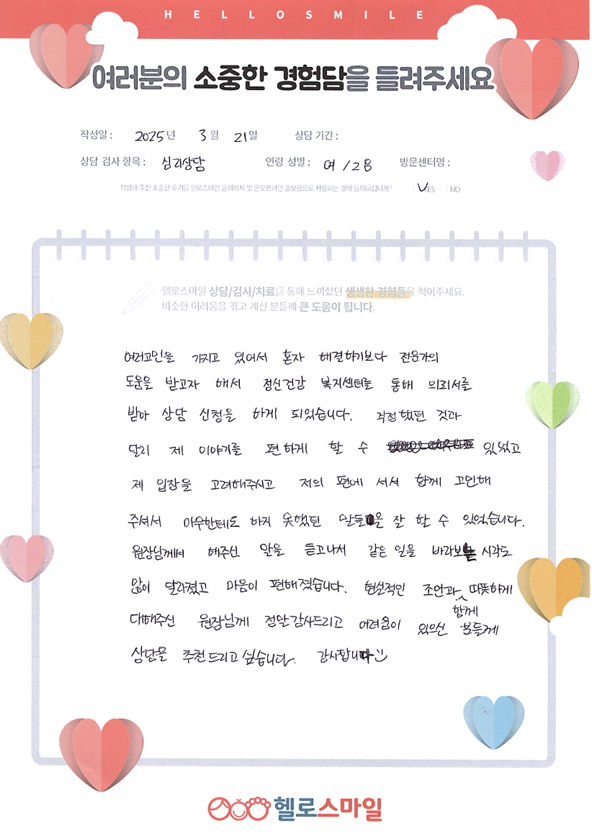 HELLOSMILE
여러분의 소중한 경험담을 들려주세요
작성일 : 2025년 3월 21일 상담 기간 :
상담 검사 항목 : 심리상담 연령 성별 : 여 / 28 방문센터명 :
작성해 주신 소중한 후기를 헬로스마일 홈페이지 및 온오프라인 홍보용으로 사용하는 것에 동의하십니까? YES NO
헬로스마일 상담/검사/치료를 통해 느끼셨던 생생한 경험들을 적어주세요.
비슷한 어려움을 겪고 계신 분들께 큰 도움이 됩니다.
여러고민을 가지고 있어서 혼자 해결하기보다 전문가의
도움을 받고자 해서 정신건강 복지센터를 통해 의뢰서를
받아 상담 신청을 하게 되었습니다. 걱정했던 것과
달리 제 이야기를 편하게 할 수 있었고
제 입장을 고려해주시고 저의 편에 서서 함께 고민해
주셔서 아무한테도 하지 못했던 말들을 잘 할 수 있었습니다.
원장님께서 해주신 말을 듣고나서 같은 일을 바라보는 시각도
많이 달라졌고 마음이 편해졌습니다. 현실적인 조언과 함께 따뜻하게
대해주신 원장님께 정말 감사드리고 어려움이 있으신 분들께
상담을 추천드리고 싶습니다. 감사합니다
헬로스마일